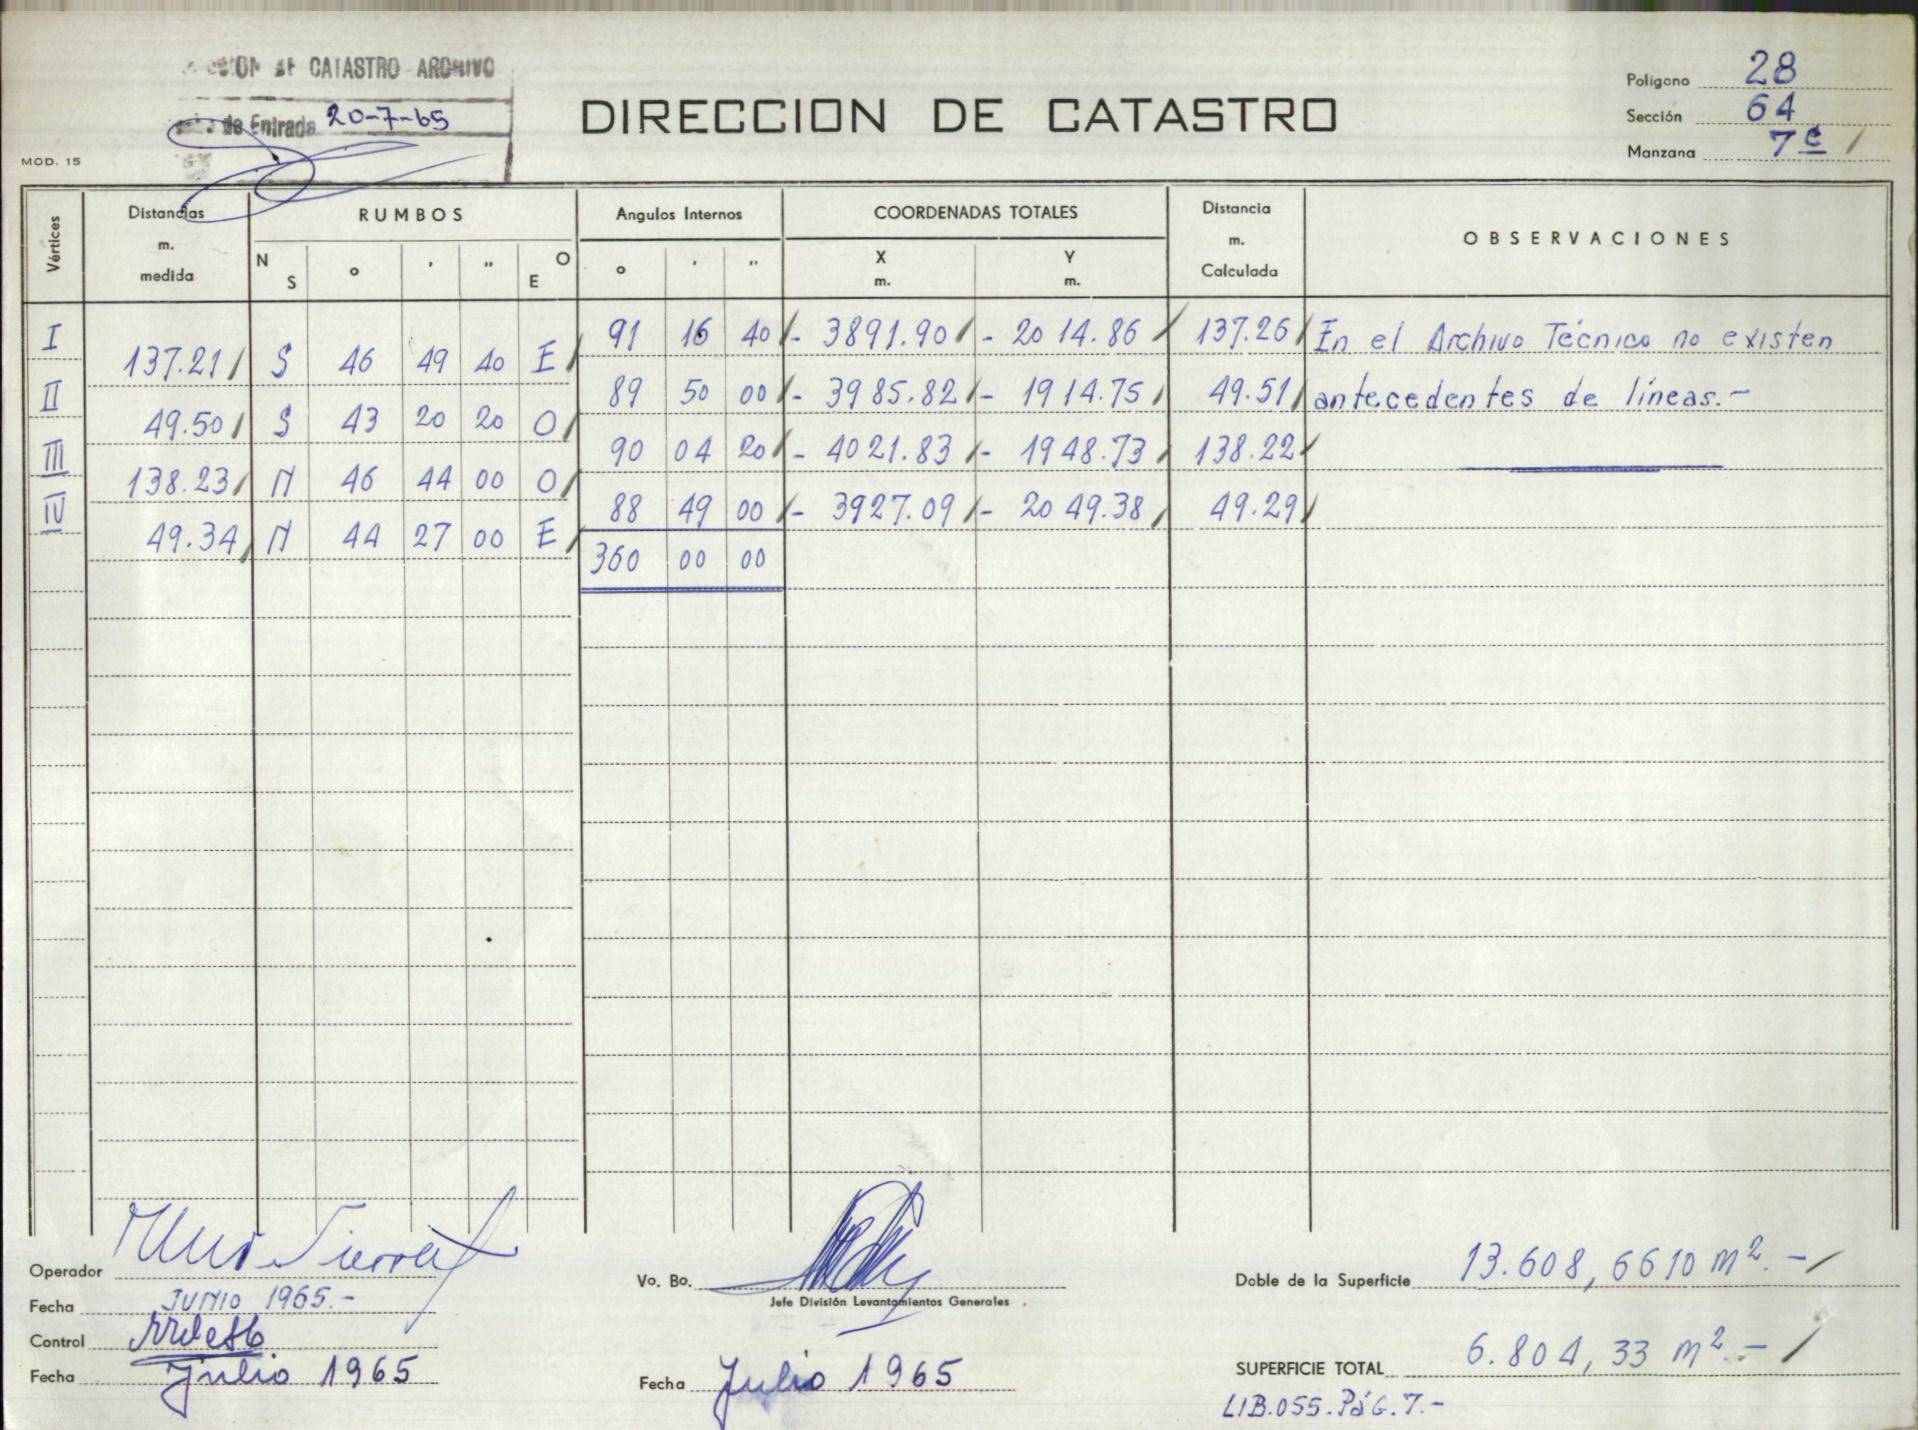 CATASTRO ARCHIVO
de Entrada 20-7-65
DIRECCION DE CATASTRO
Polígono 28
Sección 64
Manzana 7 e
MOD. 15
Vértices
Distancias m. medida
RUMBOS
N S ° ' " O E
Angulos Internos
° ' "
COORDENADAS TOTALES
X m. Y m.
Distancia m. Calculada
OBSERVACIONES
I 91 16 40 - 3891.90 - 2014.86 137.26 En el Archivo Técnico no existen
137.21 S 46 49 40 E
II 89 50 00 - 3985.82 - 1914.75 49.51 antecedentes de líneas.-
49.50 S 43 20 20 O
III 90 04 20 - 4021.83 - 1948.73 138.22
138.23 N 46 44 00 O
IV 88 49 00 - 3927.09 - 2049.38 49.29
49.34 N 44 27 00 E
360 00 00
Operador
Fecha JUNIO 1965.-
Control
Fecha Julio 1965
Vo. Bo.
Jefe División Levantamientos Generales
Fecha Julio 1965
Doble de la Superficie 13.608,6610 m². -
SUPERFICIE TOTAL 6.804,33 m². -
LIB.055.PáG.7.-